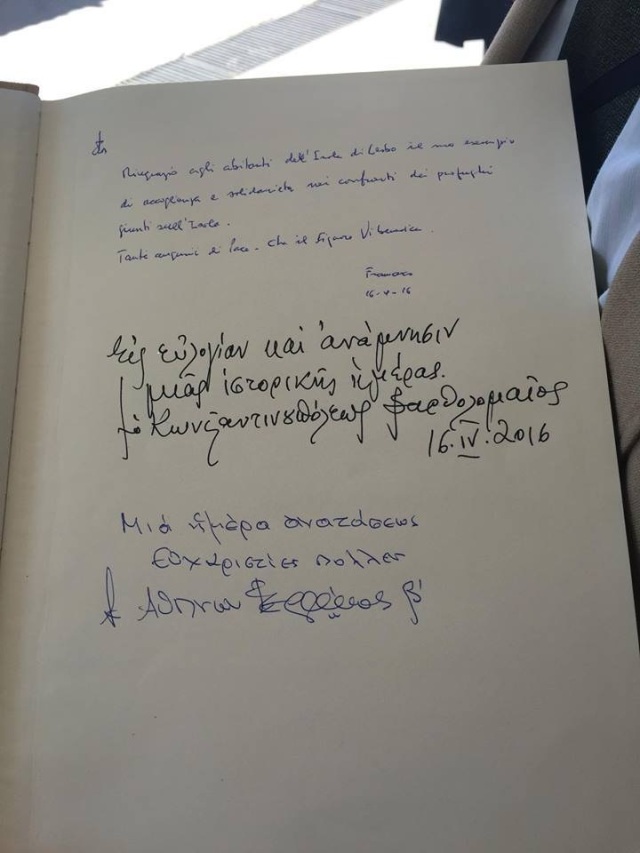 Ringrazio agli abitanti dell'Isola di Lesbo il suo esempio
di accoglienza e solidarietà nei confronti dei profughi
giunti sull'Isola.
Tanti auguri di Pace. Che il Signore Vi benedica.
Francesco
16-4-16
Εἰς εὐλογίαν καὶ ἀνάμνησιν
μιᾶς ἱστορικῆς ἡμέρας.
ὁ Κωνσταντινουπόλεως Βαρθολομαῖος
16.IV.2016
Μιά ἡμέρα ἀνατάσεως
Εὐχαριστίες πολλές
Ἀθηνῶν β'